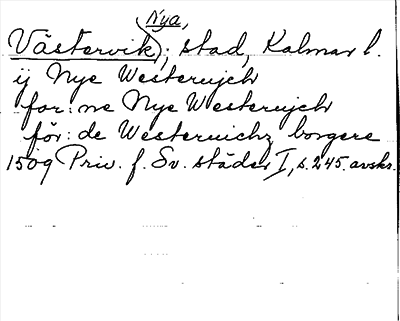 Nya,
Västervik), stad, Kalmar l.
ij Nye Westerwijch
for:ne Nye Westerwijch
för:de Westerwichz borgere
1509 Priv. f. Sv. städer I, s. 245. avskr.